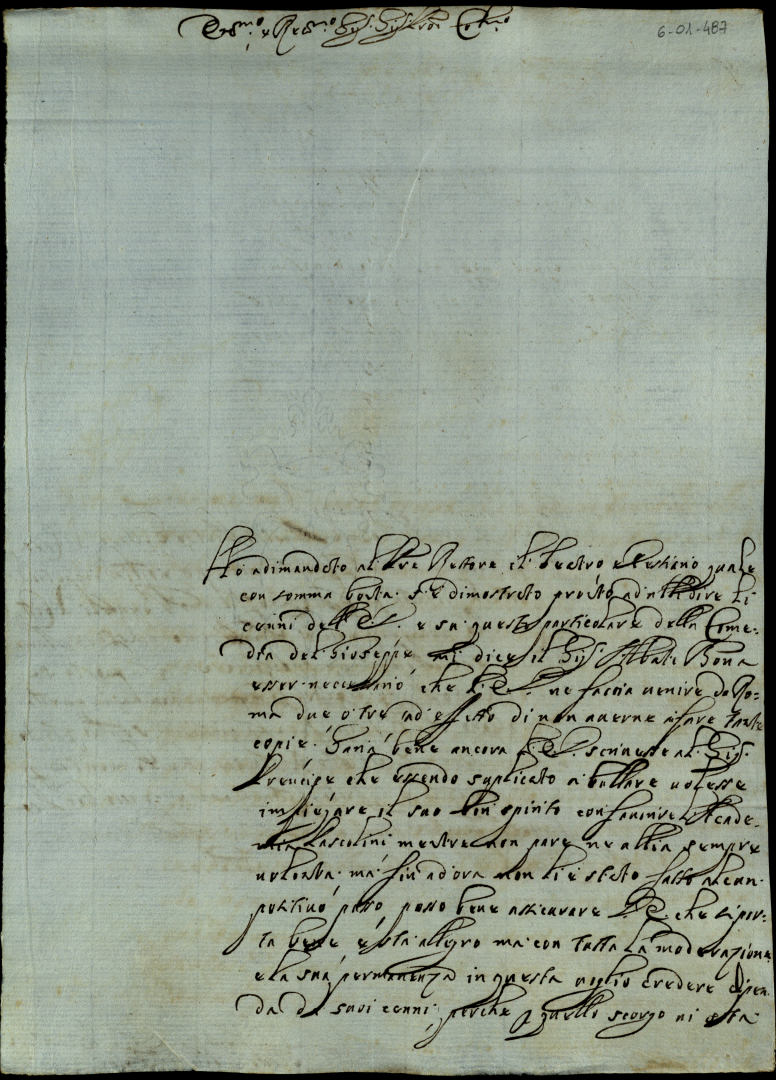 6-01-487
Em.mo e Re.mo Sig. Sig. Pron. Col.mo
Hò adimandato al Pre Rettore il teatro e vestiario quale
con somma bontà s'è dimostrato pronto ad ubbidire li
cenni dell'E.V. e su questo particolare della Come-
dia del Gioseppe mi dice il Sig. Abate Bona
esser necessario che l'E.V. ne faccia venire da Ro-
ma due ò tre ad effetto di non averne à fare tante
copie. Saria bene ancora l'E.V. scrivesse al Sig.
Prencipe che essendo suplicato à ballare volesse
impiegare il suo bon spirito con favorire l'Acade-
mia mentre non pare ne abbia sempre
volontà. mà fin ad ora non li è stato fatto alcun
posso bene assicurare l'E.V. che si por-
ta bene e stà allegro ma con tutta la moderazione
e la sua permanenza in questa voglio credere dipen-
da da suoi cenni, perche à quello scorgo vi stà